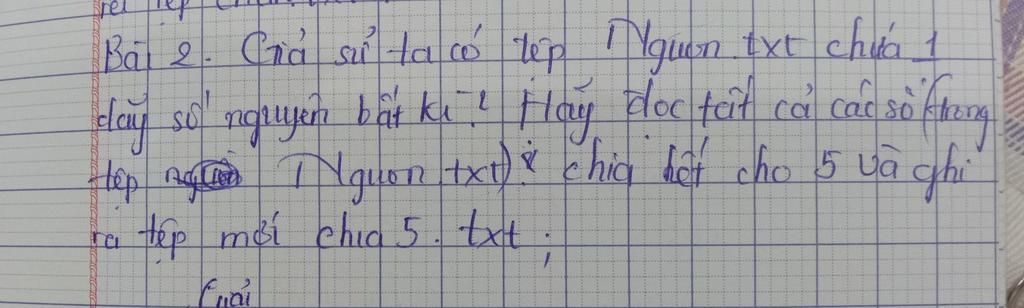 rei tệp
Bài 2. Giả sử ta có tệp Nguon.txt chứa 1
dãy số nguyên bất kì? Hãy đọc tất cả các số (trong
tệp Nguon.txt) chia hết cho 5 và ghi
ra tệp mới chia5.txt;
Giải